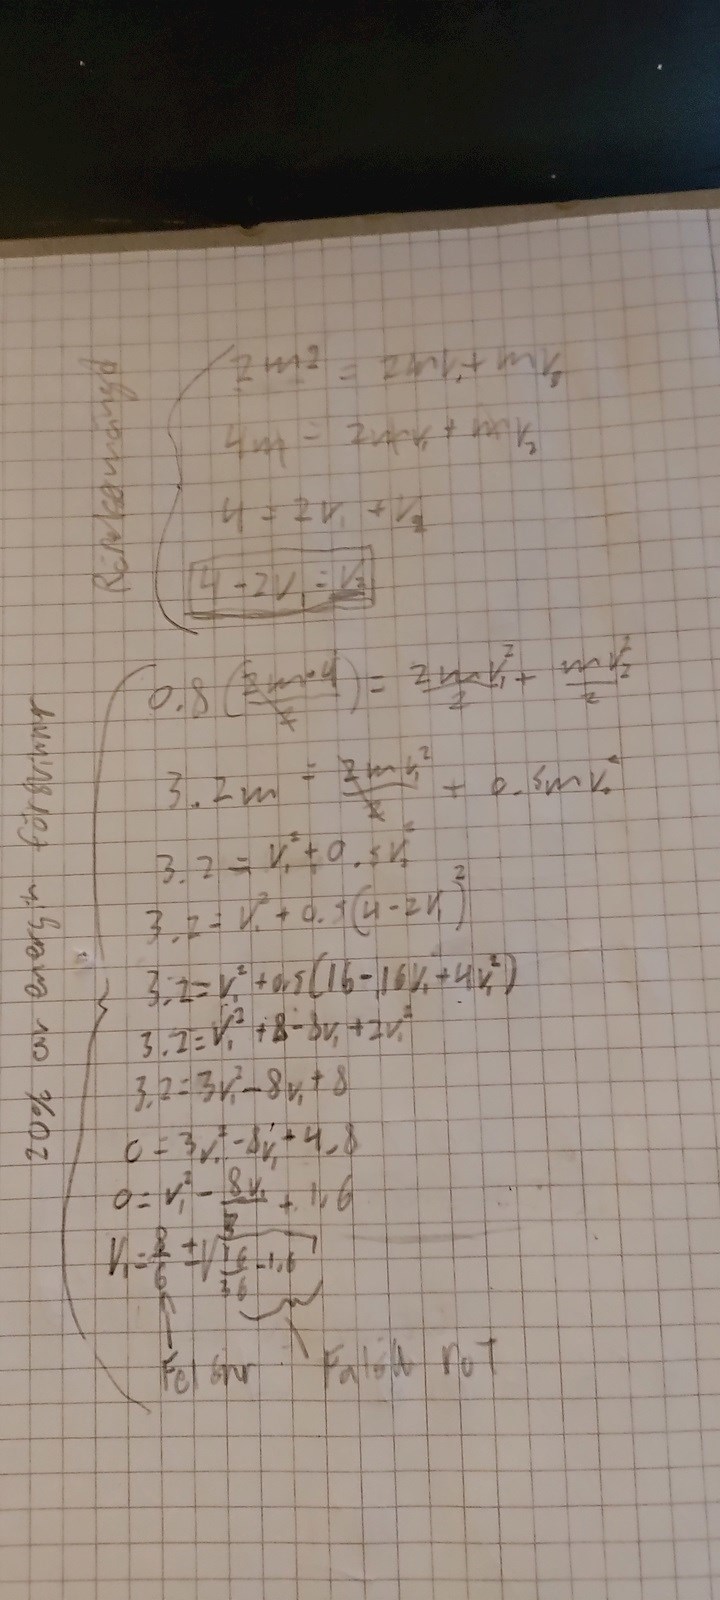 Rörelsemängd
2m·2 = 2mv₁ + mv₂
4m = 2mv₁ + mv₂
4 = 2v₁ + v₂
4 - 2v₁ = v₂
20% av energin försvinner
0.8(2m·4/2) = 2mv₁²/2 + mv₂²/2
3.2m = 2mv₁²/2 + 0.5mv₂²
3.2 = v₁² + 0.5v₂²
3.2 = v₁² + 0.5(4-2v₁)²
3.2 = v₁² + 0.5(16-16v₁+4v₁²)
3.2 = v₁² + 8 - 8v₁ + 2v₁²
3.2 = 3v₁² - 8v₁ + 8
0 = 3v₁² - 8v₁ + 4.8
0 = v₁² - 8v₁/3 + 1,6
v₁ = 8/6 ± √(
Falsk rot